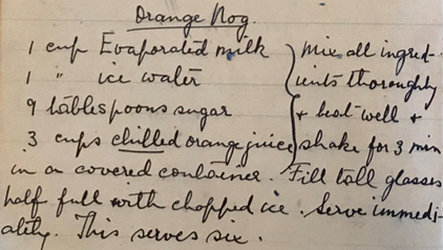 Orange Nog.
1 cup Evaporated milk } Mix all ingred-
1 " ice water } ients thoroughly
9 tablespoons sugar } & beat well &
3 cups chilled orange juice } shake for 3 min
in a covered container. Fill tall glasses
half full with chopped ice. Serve immedi-
ately. This serves six.